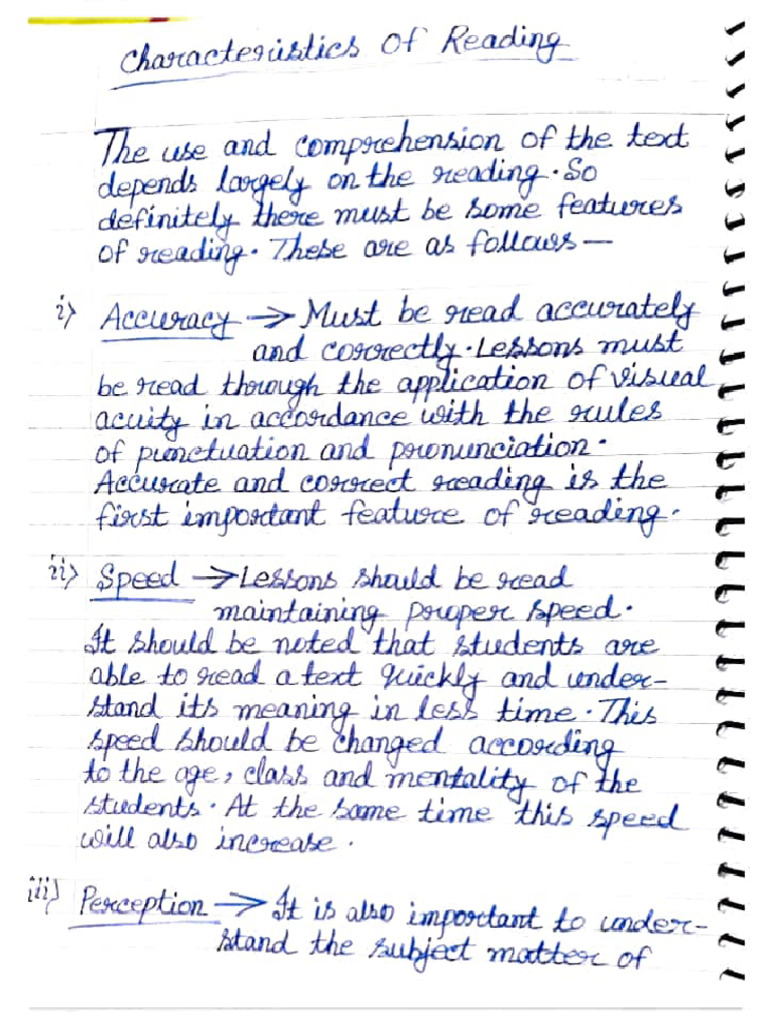 Characteristics Of Reading
The use and comprehension of the text
depends largely on the reading. So
definitely there must be some features
of reading. These are as follows—
i) Accuracy → Must be read accurately
and correctly. Lessons must
be read through the application of visual
acuity in accordance with the rules
of punctuation and pronunciation.
Accurate and correct reading is the
first important feature of reading.
ii) Speed → Lessons should be read
maintaining proper speed.
It should be noted that students are
able to read a text quickly and under-
stand its meaning in less time. This
speed should be changed according
to the age, class and mentality of the
students. At the same time this speed
will also increase.
iii) Perception → It is also important to under-
stand the subject matter of